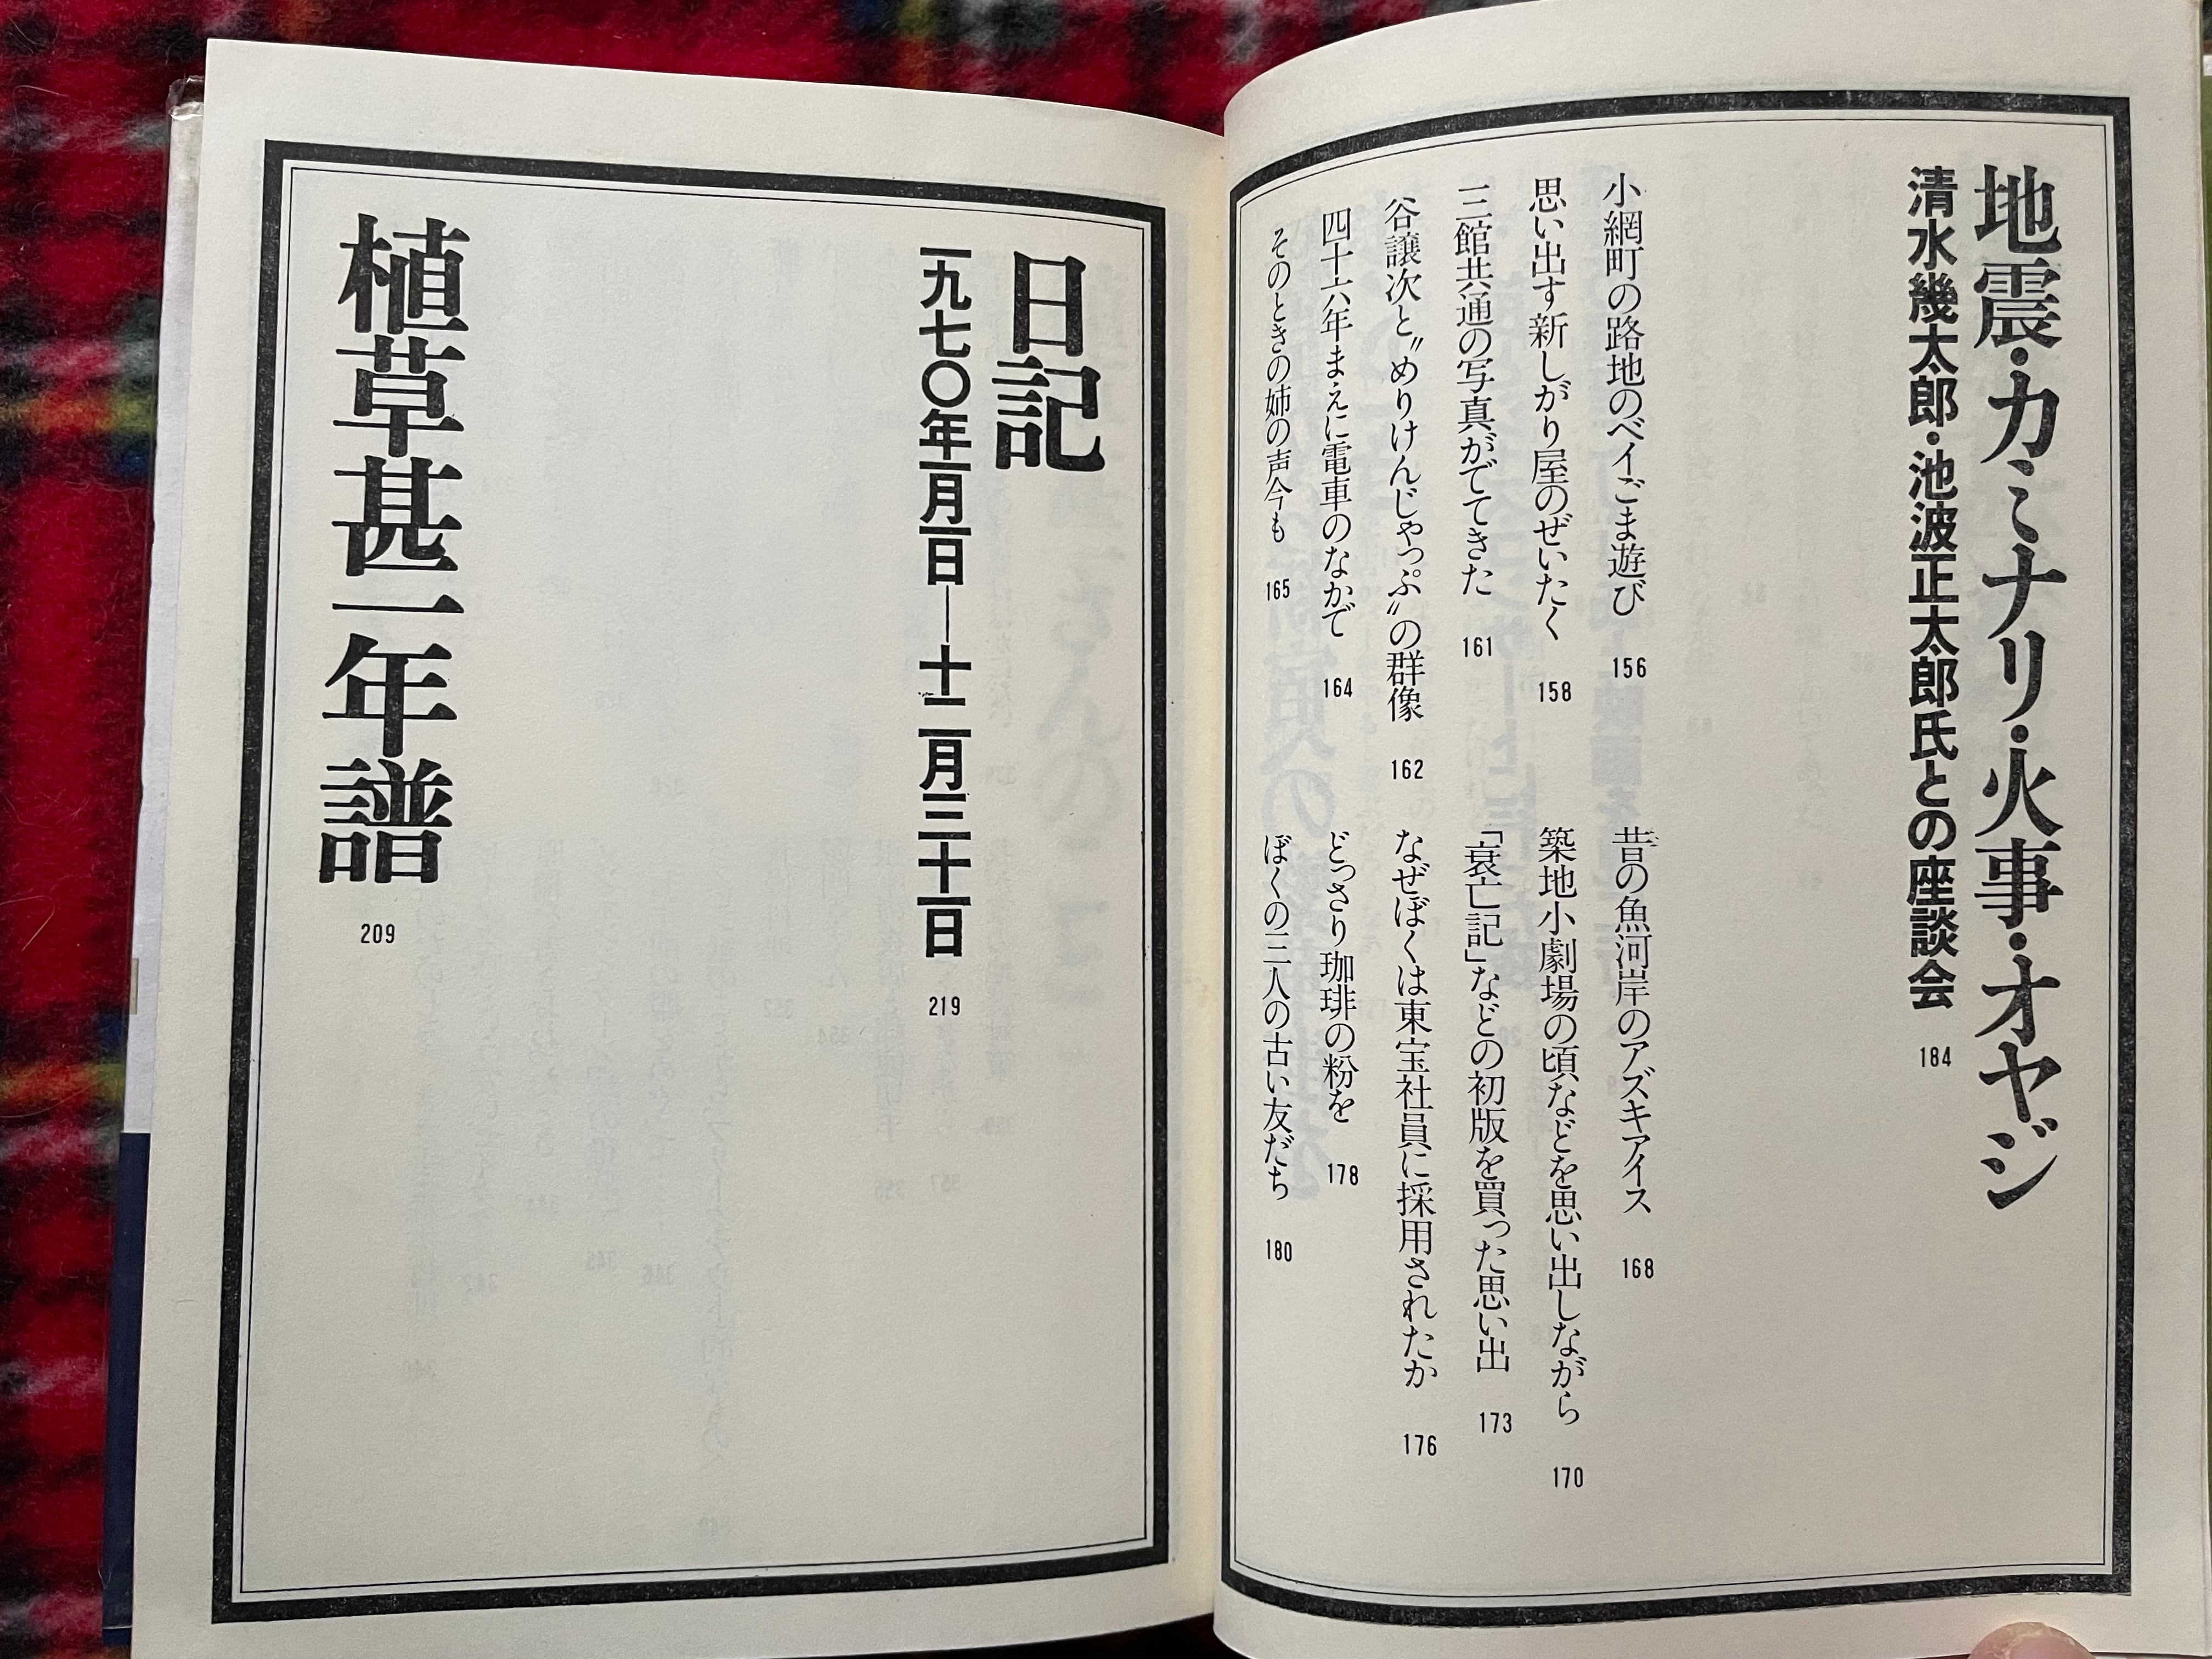 地震・カミナリ・火事・オヤジ
清水幾太郎・池波正太郎氏との座談会 184
小網町の路地のベイごま遊び 156
思い出す新しがり屋のぜいたく 158
三館共通の写真がでてきた 161
谷譲次と〝めりけんじゃっぷ〟の群像 162
四十六年まえに電車のなかで 164
そのときの姉の声今も 165
昔の魚河岸のアズキアイス 168
築地小劇場の頃などを思い出しながら 170
「衰亡記」などの初版を買った思い出 173
なぜぼくは東宝社員に採用されたか 176
どっさり珈琲の粉を 178
ぼくの三人の古い友だち 180
日記
一九七〇年一月一日―十二月三十一日 219
植草甚一年譜 209